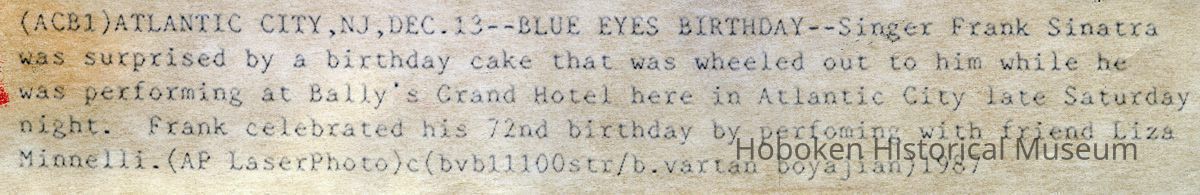 (ACB1)ATLANTIC CITY,NJ,DEC.13--BLUE EYES BIRTHDAY--Singer Frank Sinatra
was surprised by a birthday cake that was wheeled out to him while he
was performing at Bally's Grand Hotel here in Atlantic City late Saturday
night. Frank celebrated his 72nd birthday by perfoming with friend Liza
Minnelli.(AP LaserPhoto)c(bvb11100str/b.vartan boyajian)1987
Hoboken Historical Museum